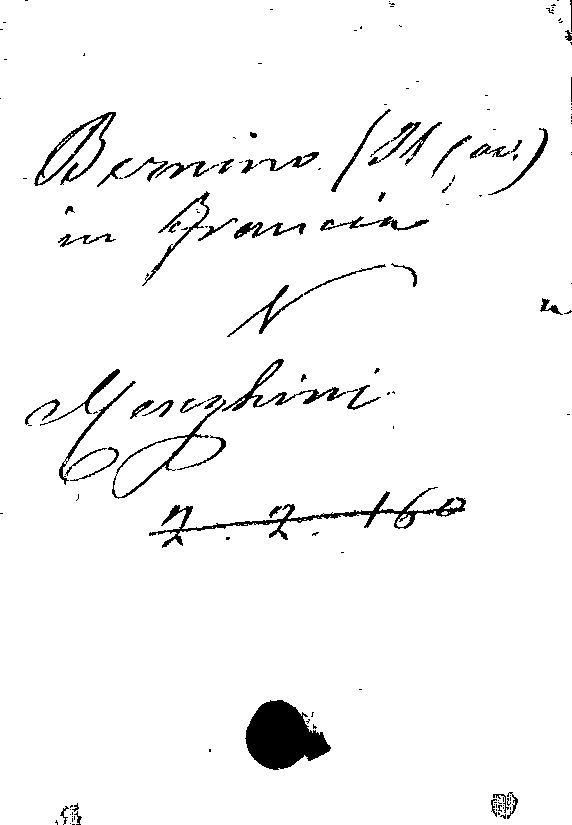 Bernino (Il Cav.)
in Francia
V
Meneghini
2. 2. 160